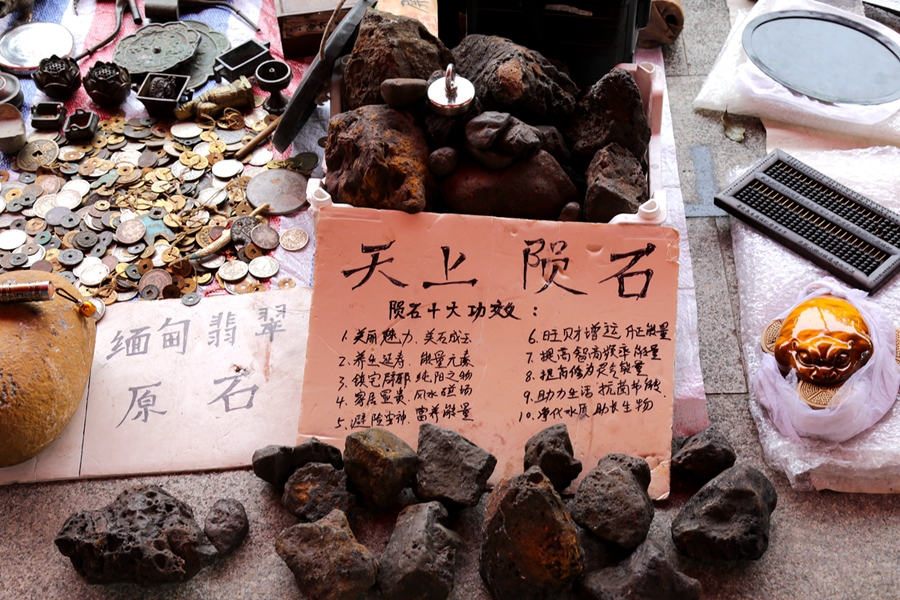 天上 陨石
陨石十大功效:
1. 美丽魅力、美石成云
2. 养生延寿、能量元素
3. 镇宅辟邪 纯阳之物
4. 家居置景、风水磁场
5. 避险 富裕能量
6. 旺财增运 正能量
7. 提高智商频率能量
8. 提高修为 灵气能量
9. 助力生活 抗菌节能、
10. 净代水质 助长生物
缅甸翡翠
原石